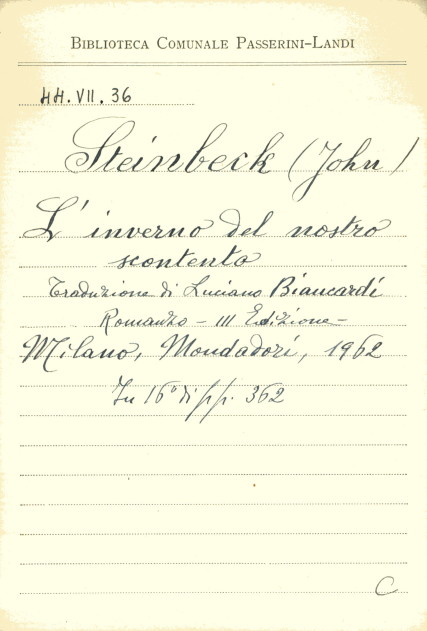 BIBLIOTECA COMUNALE PASSERINI-LANDI
44.VII.36
Steinbeck (John)
L'inverno del nostro
scontento
Traduzione di Luciano Biancardi
Romanzo - III Edizione -
Milano, Mondadori, 1962
In 16° di pp. 362
C